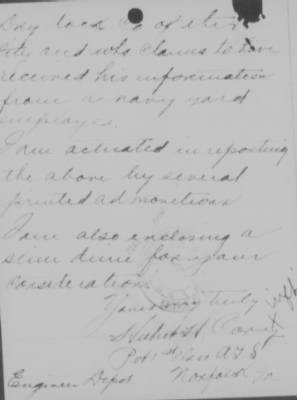 Dry Dock Co of this
City and who claims to have
received his information
from a navy yard
employee.
I am actuated in reporting
the above by several
printed admonitions
I am also enclosing a
for your
consideration.
Yours very truly
Pvt 1st Class A.G.S.
Engineer Depot Norfolk Va